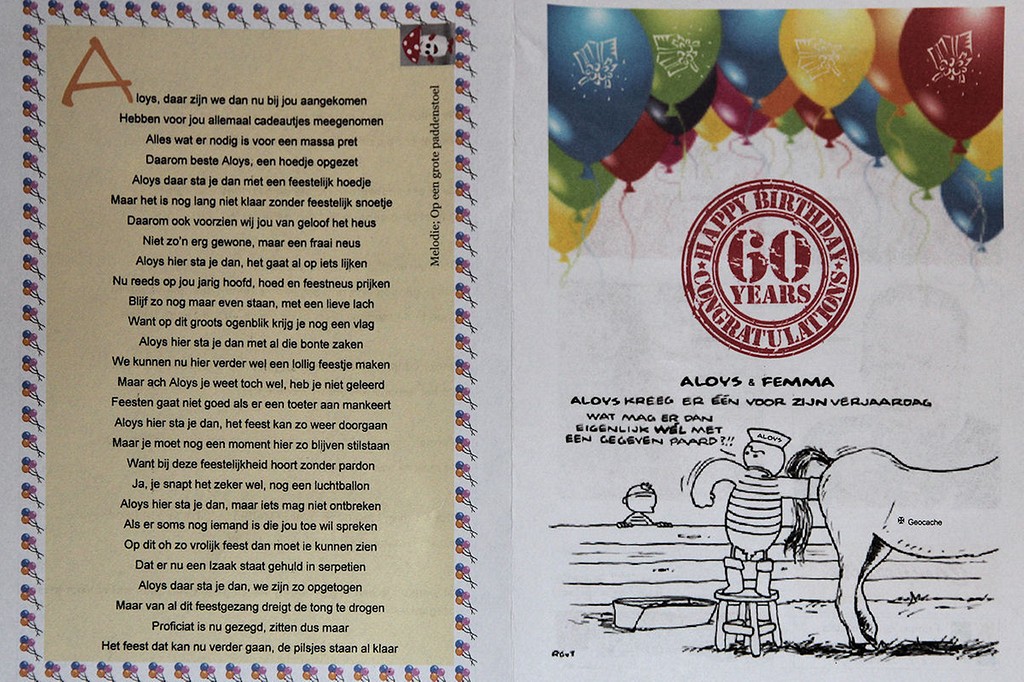 Aloys, daar zijn we dan nu bij jou aangekomen
Hebben voor jou allemaal cadeautjes meegenomen
Alles wat er nodig is voor een massa pret
Daarom beste Aloys, een hoedje opgezet
Aloys daar sta je dan met een feestelijk hoedje
Maar het is nog lang niet klaar zonder feestelijk snoetje
Daarom ook voorzien wij jou van geloof het heus
Niet zo'n erg gewone, maar een fraai neus
Aloys hier sta je dan, het gaat al op iets lijken
Nu reeds op jou jarig hoofd, hoed en feestneus prijken
Blijf zo nog maar even staan, met een lieve lach
Want op dit groots ogenblik krijg je nog een vlag
Aloys hier sta je dan met al die bonte zaken
We kunnen nu hier verder wel een lollig feestje maken
Maar ach Aloys je weet toch wel, heb je niet geleerd
Feesten gaat niet goed als er een toeter aan mankeert
Aloys hier sta je dan, het feest kan zo weer doorgaan
Maar je moet nog een moment hier zo blijven stilstaan
Want bij deze feestelijkheid hoort zonder pardon
Ja, je snapt het zeker wel, nog een luchtballon
Aloys hier sta je dan, maar iets mag niet ontbreken
Als er soms nog iemand is die jou toe wil spreken
Op dit oh zo vrolijk feest dan moet ie kunnen zien
Dat er nu een Izaak staat gehuld in serpetien
Aloys daar sta je dan, we zijn zo opgetogen
Maar van al dit feestgezang dreigt de tong te drogen
Proficiat is nu gezegd, zitten dus maar
Het feest dat kan nu verder gaan, de pilsjes staan al klaar
Melodie; Op een grote paddenstoel
HAPPY BIRTHDAY
60
YEARS
CONGRATULATIONS
ALOYS & FEMMA
ALOYS KREEG ER ÉÉN VOOR ZIJN VERJAARDAG
WAT MAG ER DAN
EIGENLIJK WÉL MET
EEN GEGEVEN PAARD?!!
ALOYS
Geocache